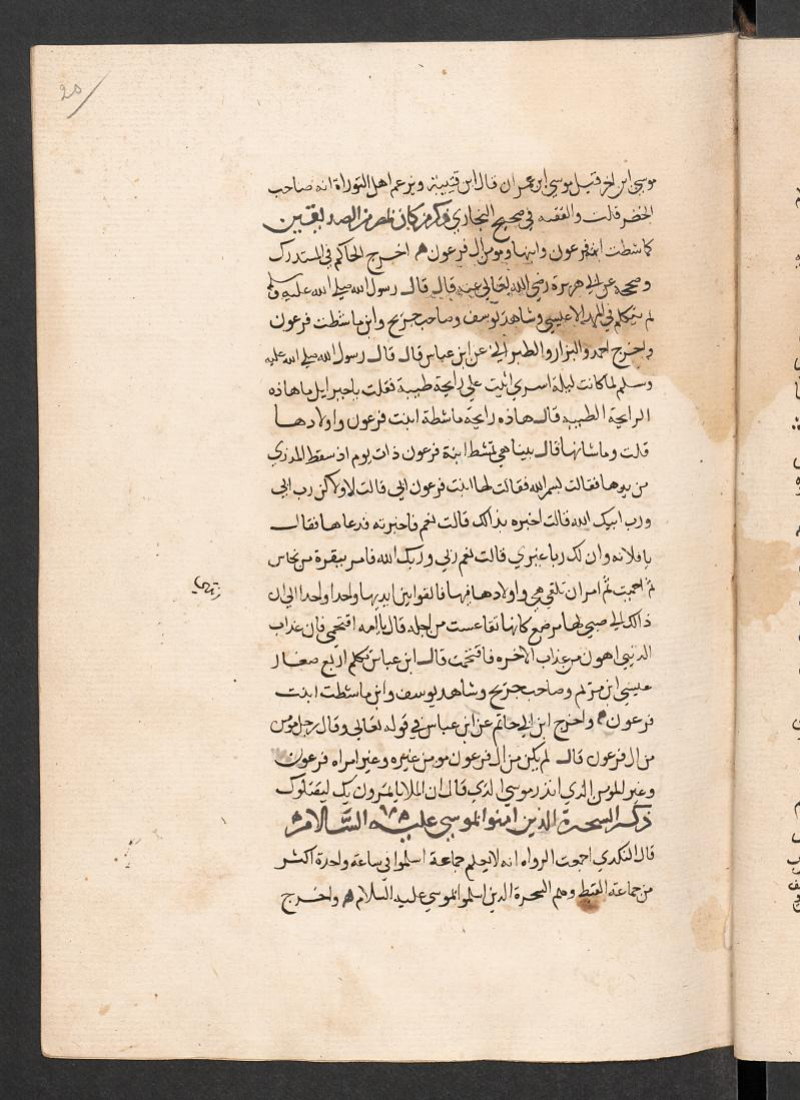 20
موسي ابن اخر قبل موسي ابن عمران قال ابن قتيبة ويزعم اهل التوراة انه صاحب
الخضر قلت والقصه في صحيح البخاري ذكر من كان بمصر من الصديقين
كماشطت ابنت فرعون وابنها ومومن ال فرعون ه اخرج الحاكم في المستدرك
وصححه عن ابي هريرة رضي الله تعالي عنه قال قال رسول الله صلي الله عليه وسلم
لم يتكلم في المهد الا عيسي وشاهد يوسف وصاحب جريح وابن ماشطت فرعون
واخرج احمد والبزار والطبراني عن ابن عباس قال قال رسول الله صلي الله عليه
وسلم لما كانت ليلة اسري اتيت علي رايحة طيبة فقلت ياجبرايل ما هاذه
الرايحة الطيبه قال هاذه رايحة ماشطة ابنت فرعون واولادها
قلت وما شانها قال بينا هي تمشط ابنة فرعون ذات يوم اذ سقط المدري
من يدها فقالت بسم الله فقالت لها ابنت فرعون ابي قالت لا ولاكن رب ابي
ورب ابيك الله قالت اخبره بذالك قالت نعم فاخبرته فدعاها فقال
يا فلانه وان لك ربا غيري قالت نعم ربي وربك الله فامر ببقرة من نحاس
ثم احميت ثم امر ان تلقي هي واولادها فيها فالقوا بين ايديها واحدا واحدا الي ان
ذالك الي صبي لها مرضع كانها تقاعست من اجله قال ياامه اقتحمي فان عذاب
الدنيي اهون من عذاب الاخره فاقتحمت قال ابن عباس تكلم اربع صغار
عيسي ابن مريم وصاحب جريح وشاهد يوسف وابن ماشطت ابنت
فرعون ه واخرج ابن ابي حاتم عن ابن عباس في قوله تعالي وقال رجل مومن
من ال فرعون قال لم يكن من ال فرعون مومن غيره وغير امراه فرعون
وغير المومن الذي انذر موسي الذي قال ان الملا ياتمرون بك ليقتلوك
ذكر السحرة الذين امنوا بموسي عليه السلام
قال الكندي اجمعت الرواه انه لا يعلم جماعة اسلموا في ساعة واحدة اكثر
من جماعة القبط وهم السحرة الذين اسلموا بموسي عليه السلام ه واخرج